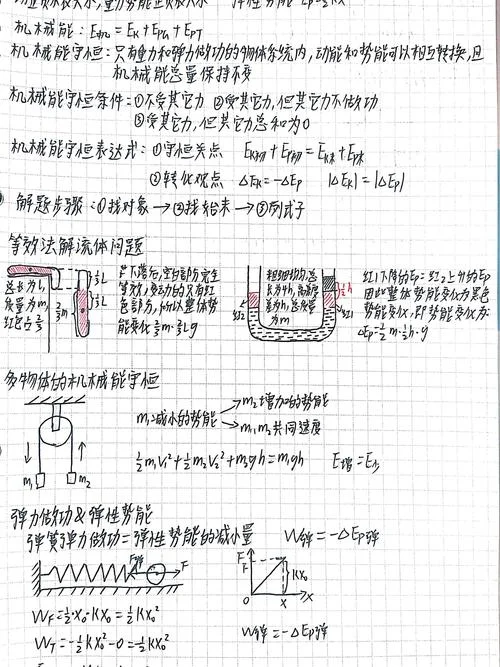 机械能：E机=EK+EPG+EPT
机械能守恒：只有重力和弹力做功的物体系统内，动能和势能可以相互转换，且
机械能总量保持不变
机械能守恒条件：①不受其它力 ②受其它力，但其它力不做功
③受其它力，但其它力总和为0
机械能守恒表达式：①守恒观点 EK初+EP初=EK末+EP末
②转化观点 △EK=-△EP |△EK|=|△EP|
解题步骤：①找对象→②找始末→③列式子
等效法解流体问题
总长为L，
质量为m，
红色占
等效，变动的只有红
色部分，所以整体势
能变化
粗细均匀，总
长为4h，高度
差为h，总质量
为m
½h
红1 红2
红1下降的EP=红2上升的EP
因此整体势能变化为黑色
势能变化，即势能变化为：
△EP=½m·½h·g
多物体的机械能守恒
m₁减小的势能
m₂增加的势能
m₁m₂共同速度
m₁ m₂
½m₁V₁²+½m₂V₂²+m₂gh=m₁gh E增=E减
弹力做功&弹性势能
弹簧弹力做功=弹性势能的减小量 W弹=-△EP弹
F弹 F
F
KX₀
O X X
WF=½·X₀·KX₀=½KX₀²
W弹=-△EP弹
WT=-½KX₀²-0=-½KX₀²